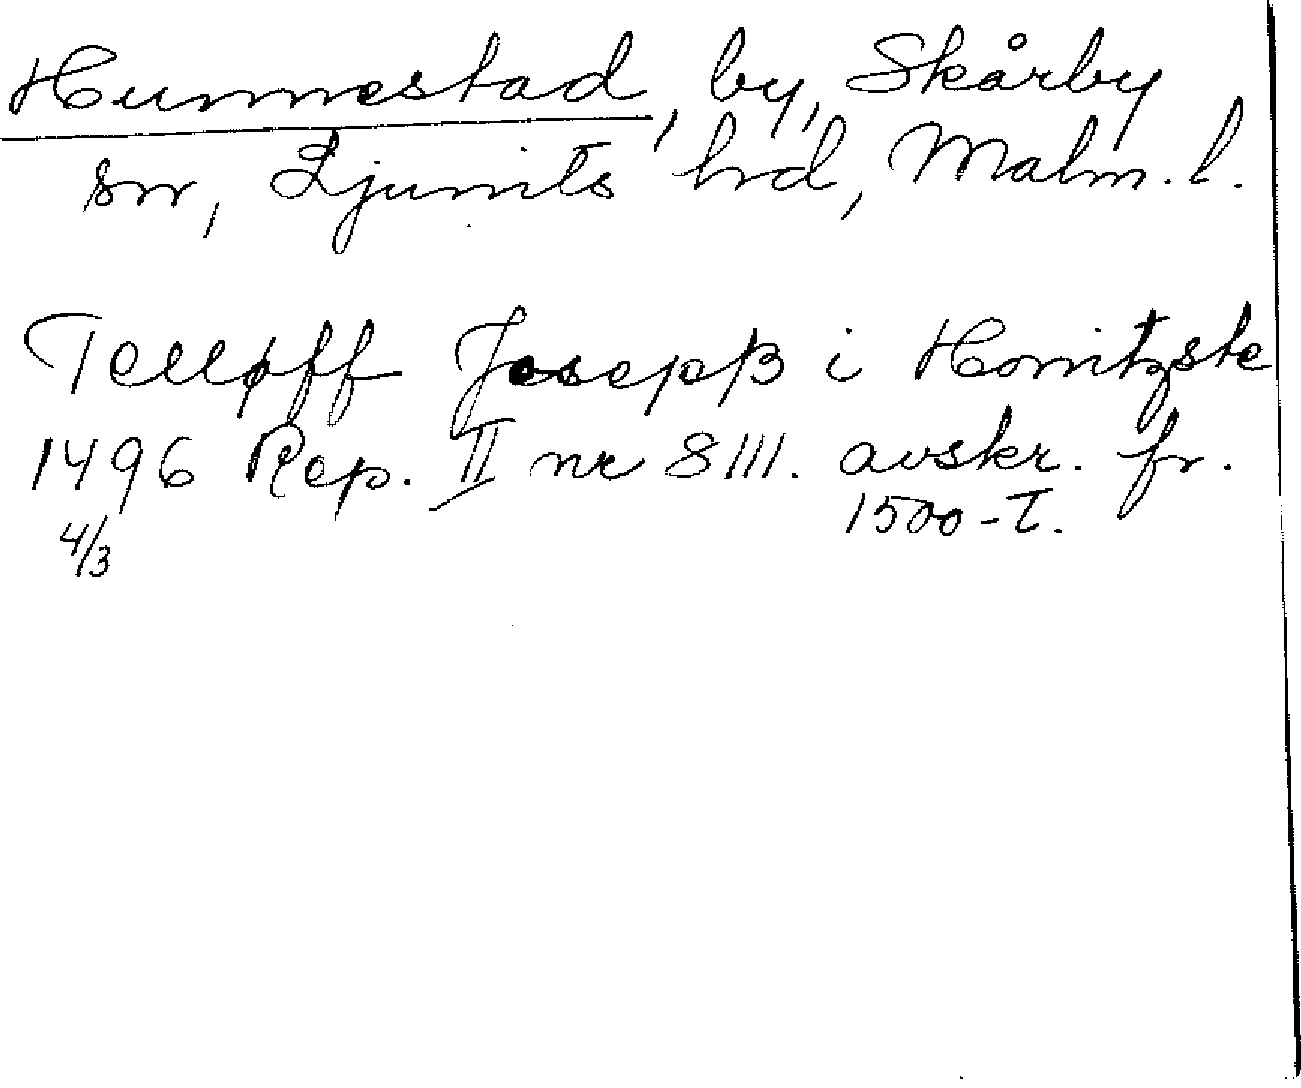 Hunnestad, by, Skårby
sn, Ljunits hrd, Malm. l.
Telløff Jesepß i Honnitzste
1496 Rep. II nr 8111. avskr. fr.
4/3 1500-T.